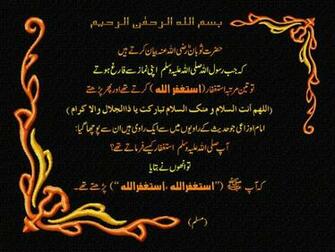 بسم الله الرحمٰن الرحيم
حضرت ثوبان رضی اللہ عنہ بیان کرتے ہیں
کہ جب رسول اللہ صلی اللہ علیہ وسلم اپنی نماز سے فارغ ہوتے
تو تین مرتبہ استغفار (استغفر الله) کرتے تھے اور پھر پڑھتے
(اللهم أنت السلام و منك السلام تباركت يا ذا الجلال والا كرام)
امام اوزاعی جو حدیث کے راویوں میں سے ایک راوی ہیں ان سے پوچھا گیا:
آپ صلی اللہ علیہ وسلم استغفار کیسے فرماتے تھے؟
تو انھوں نے بتایا
کہ آپ ﷺ (”استغفر الله ، استغفر الله“) پڑھتے تھے۔
(مسلم)